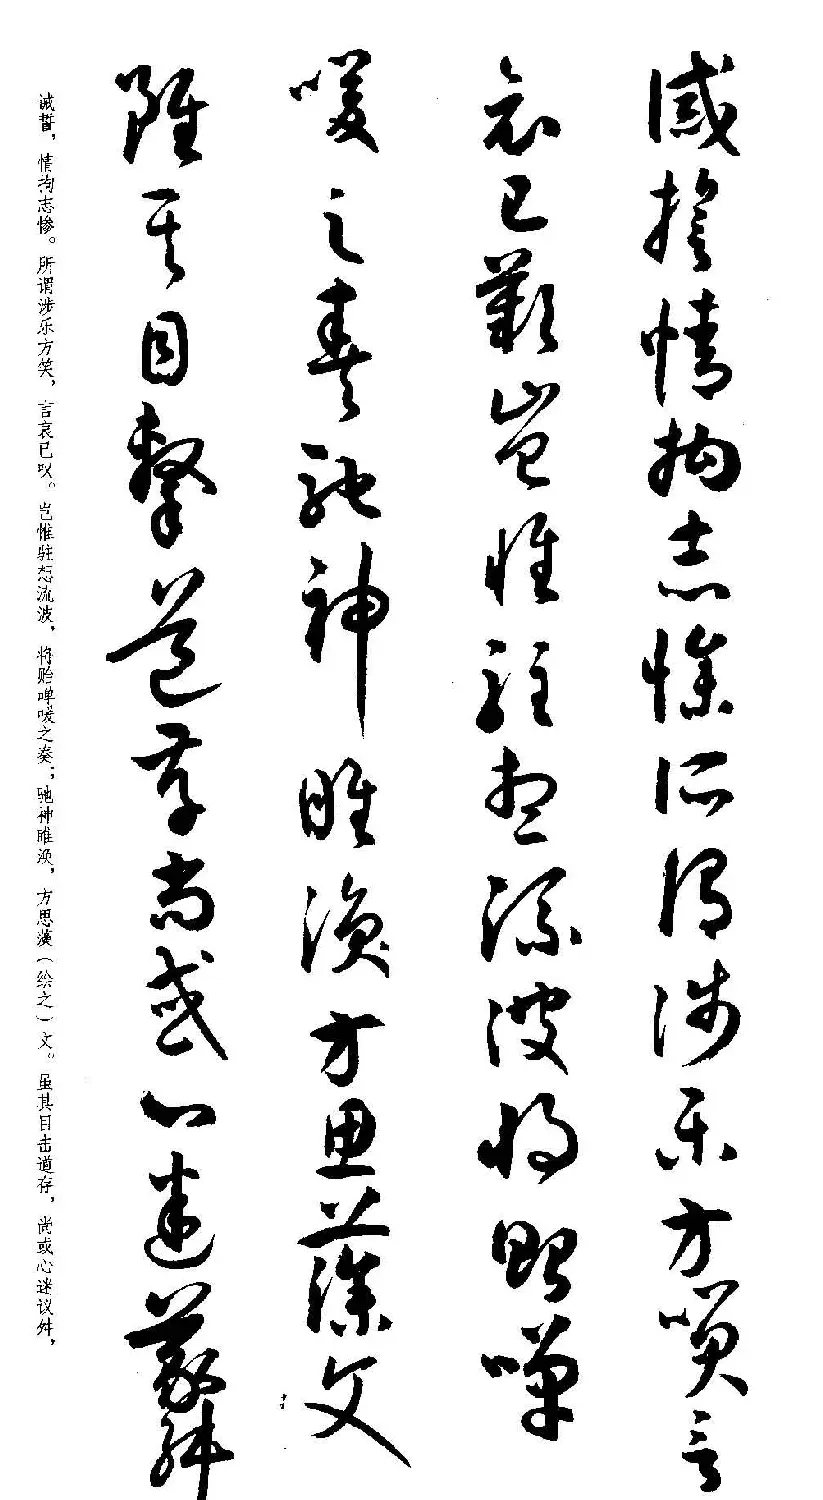 誡誓情拘志慘所謂涉樂方笑言
哀已歎豈惟駐想流波將貽嘽
喛之奏馳神睢渙方思藻文
雖其目擊道存尚或心迷議舛
诫誓，情拘志惨。所谓涉乐方笑，言哀已叹。岂惟驻想流波，将贻啴喛之奏；驰神睢涣，方思藻（绘之）文。虽其目击道存，尚或心迷议舛，